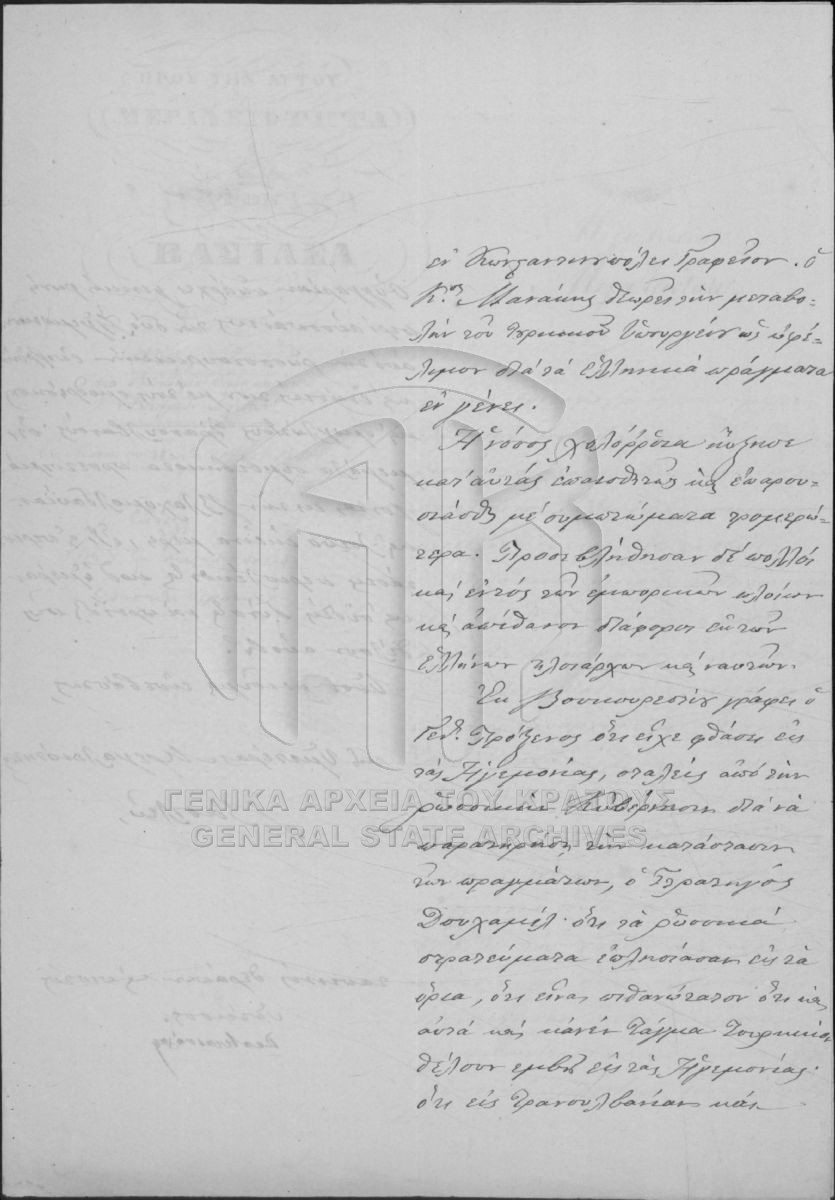 ἐν Κωνσταντινουπόλει Γραφεῖον. ὁ
Κος Μανάκης θεωρεῖ τὴν μεταβο-
λὴν τοῦ Τουρκικοῦ Ὑπουργείου ὡς ὠφέ-
λιμον διὰ τὰ Ἑλληνικὰ πράγματα
ἐν γένει.
Ἡ νόσος χολόῤῥοια ηὔξησε
κατ' αὐτὰς ἐπαισθητῶς καὶ ἐπαρου-
σιάσθη μὲ συμπτώματα τρομερώ-
τερα. Προσεβλήθησαν δὲ πολλοὶ
καὶ ἐντὸς τῶν ἐμπορικῶν πλοίων
καὶ ἀπέθανον διάφοροι ἐκ τῶν
Ἑλλήνων πλοιάρχων καὶ ναυτῶν.
Ἐκ Βουκουρεστίου γράφει ὁ
Γενκ. Πρόξενος ὅτι εἶχε φθάσει εἰς
τὰς Ἡγεμονίας, σταλεὶς ἀπὸ τὴν
ῥωσσικὴν Κυβέρνησιν διὰ νὰ
παρατηρήσῃ τὴν κατάστασιν
τῶν πραγμάτων, ὁ Στρατηγὸς
Δουχαμὲλ· ὅτι τὰ ῥωσσικὰ
στρατεύματα ἐπλησίασαν εἰς τὰ
ὅρια, ὅτι εἶναι πιθανώτατον ὅτι καὶ
αὐτὰ καὶ κανὲν τάγμα Τουρκικὸν
θέλουν ἐμβῆ εἰς τὰς Ἡγεμονίας·
ὅτι εἰς Τρανσυλβανίαν καὶ
ΓΕΝΙΚΑ ΑΡΧΕΙΑ ΤΟΥ ΚΡΑΤΟΥΣ
GENERAL STATE ARCHIVES